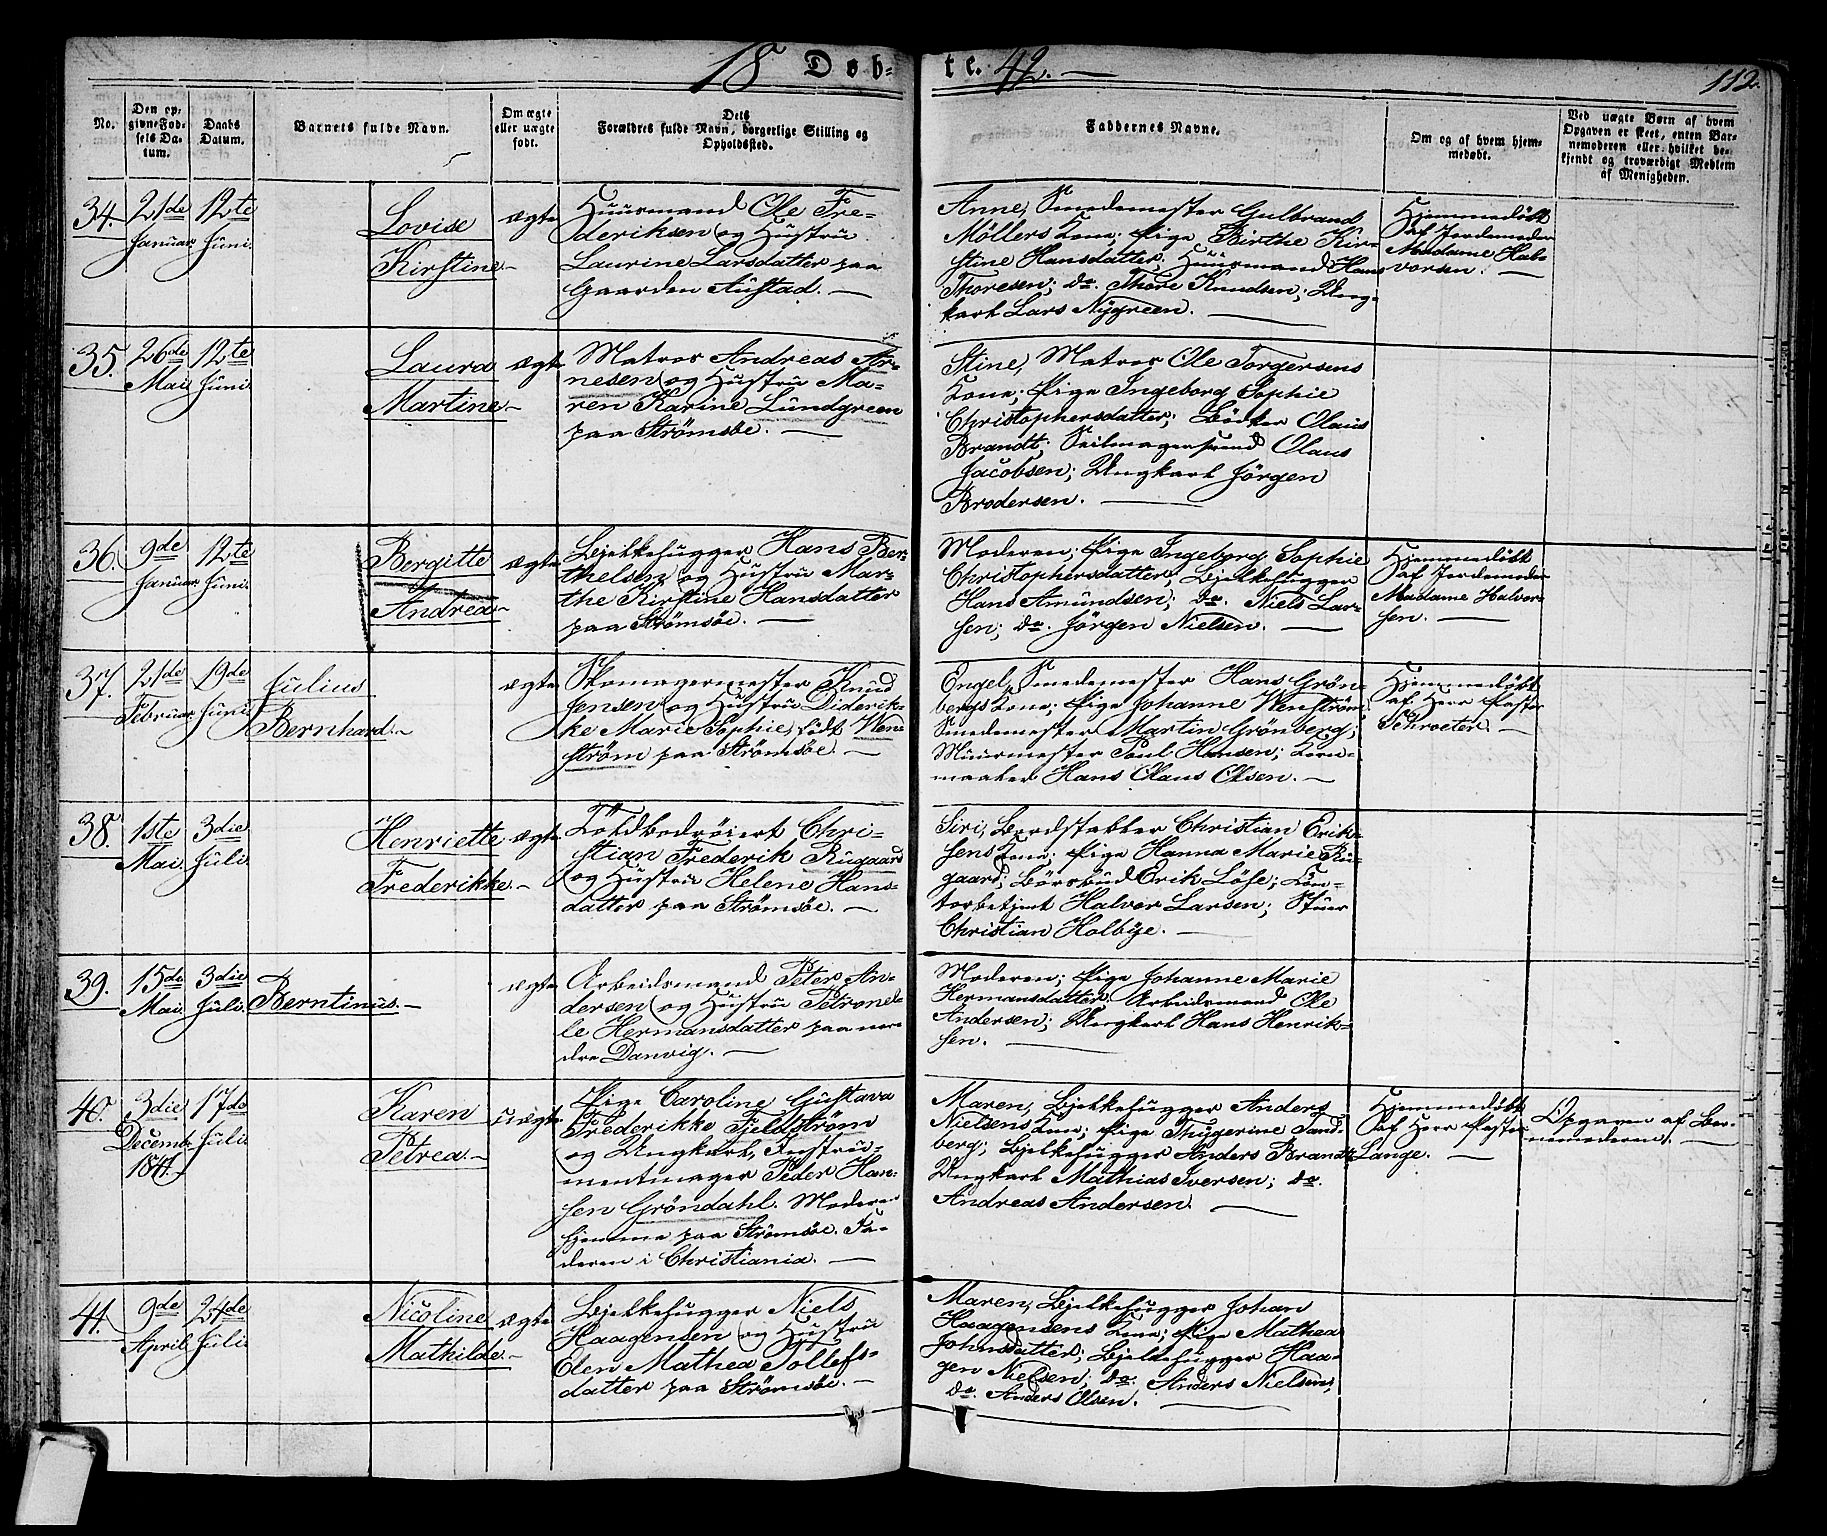 18 Døb-
te. 42.
112.
No.
Den op-
givne Fød-
sels Da-
tum.
Daabs
Datum.
Barnets fulde Navn.
Om ægte
eller uægte
født.
Dets
Forældres fulde Navn, borgerlige Stilling og
Opholdssted.
Faddernes Navne.
Om og af hvem hjem-
medøbt.
Ved uægte Børn af hvem
Opgaven er skeet, enten Bar-
nemoderen eller hvilket be-
kjendt og troværdigt Medlem
af Menigheden.
34. 21de
Januar.
12te
Juni.
Lovise
Kirstine
ægte
Huusmand Ole Fre-
deriksen og Hustru
Laurine Larsdatter paa
Gaarden Austad.
Anne, Smedemester Gulbrand
Möllers Kone; Pige Birthe Kir-
stine Hansdatter; Huusmand Hans
Thoresen; do. Thore Knudsen; Ung-
karl Lars Nygreen.
Hjemmedøbt
af Jordemoder
Madame Hal-
vorsen.
35. 26de
Mai
12te
Juni.
Laura
Martine
ægte
Matros Andreas Ar-
nesen og Hustru Ma-
ren Karine Lundgreen
paa Strømsøe.
Stine, Matros Ole Torgersens
Kone; Pige Ingeborg Sophie
Christophersdatter; Bödker Olaus
Brandt; Seilmagersvend Olaus
Jacobsen; Ungkarl Jörgen
Brodersen.
36. 9de
Januar.
12te
Juni.
Bergitte
Andrea
ægte
Bjelkehugger Hans Ber-
thelsen og Hustru Mar-
the Kirstine Hansdatter
paa Strømsøe.
Moderen; Pige Ingeborg Sophie
Christophersdatter; Bjelkehugger
Hans Amundsen; do. Niels Lar-
sen; do. Jörgen Nielsen.
Hjemmedøbt
af Jordemoder
Madame Halvor-
sen.
37. 21de
Februar.
19de
Juni
Julius
Bernhard.
ægte
Skomagermester Knud
Jensen og Hustru Diderik-
ke Marie Sophie, født Wen-
ström paa Strømsøe.
Engel, Smedemester Hans Grön-
bergs Kone; Pige Johanne Wenström;
Smedemester Martin Grönberg;
Muurmester Poul Hansen;
Hans Olaus Olsen.
Hjemmedøbt
af Herr Pastor
Schroeter.
38. 1ste
Mai.
3die
Juli.
Henriette
Frederikke
ægte
Toldbetjent Chri-
stian Frederik Rugaard
og Hustru Helene Hans-
datter paa Strømsøe.
Siri, Bordstabler Christian Erik-
sens Kone; Pige Hanna Marie Ru-
gaard; Börsbud Erik Löse; Con-
torbetjent Halvor Larsen;
Christian Holbye.
39. 15de
Mai.
3die
Juli.
Berntinus.
ægte
Arbeidsmand Peter An-
dersen og Hustru Petronel-
le Hermansdatter paa nor-
dre Danvig.
Moderen; Pige Johanne Marie
Hermansdatter; Arbeidsmand Ole
Andersen; Ungkarl Hans Henrik-
sen.
40. 3die
Decembr.
1841.
17de
Juli
Karen
Petrea.
uægte
Pige Caroline Gustava
Frederikke Fjeldström
og Ungkarl, Instru-
mentmager Peder Han-
sen Gröndahl. Moderen
hjemme paa Strømsøe. Fa-
deren i Christiania.
Maren, Bjelkehugger Anders
Nielsens Kone; Pige Thygerine Sand-
berg; Bjelkehugger Anders Brandt;
Ungkarl Mathias Iversen; do.
Andreas Andersen.
Hjemmedøbt
af Herr Pastor
Lange.
Opgaven af Bar-
nemoderen.
41. 9de
April.
24de
Juli.
Nicoline
Mathilde
ægte
Bjelkehugger Niels
Haagensen og Hustru
Elen Mathea Tollefs-
datter paa Strømsøe.
Maren, Bjelkehugger Johan
Haagensens Kone; Pige Mathea
Johnsdatter; Bjelkehugger Haa-
gen Nielsen; do. Anders Nielsen;
do. Anders Olsen.